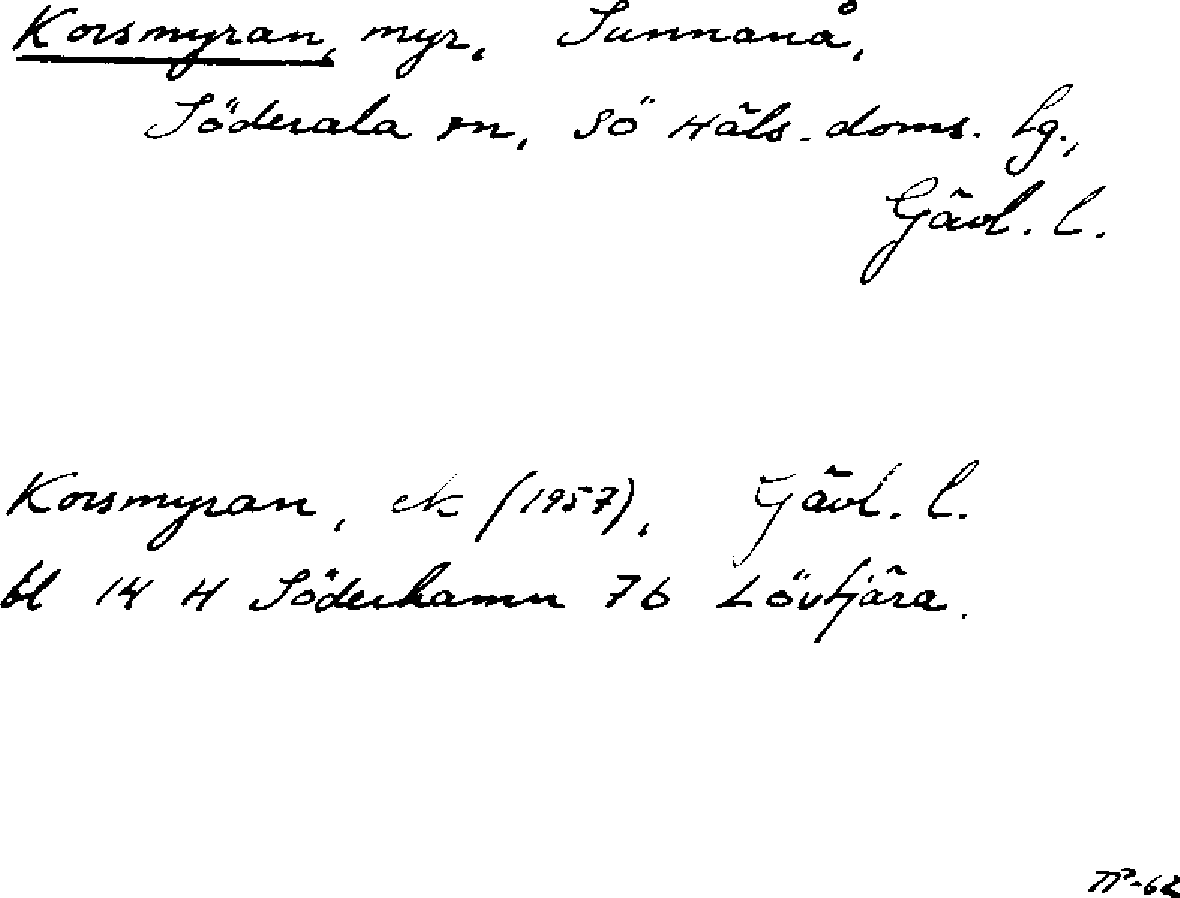 Korsmyran, myr, Sunnanå,
Söderala sn, Sö Häls. doms. lg.,
Gävl. l.
Korsmyran, ek (1957), Gävl. l.
bl 14 H Söderhamn 7b Lövtjära.
TP-62